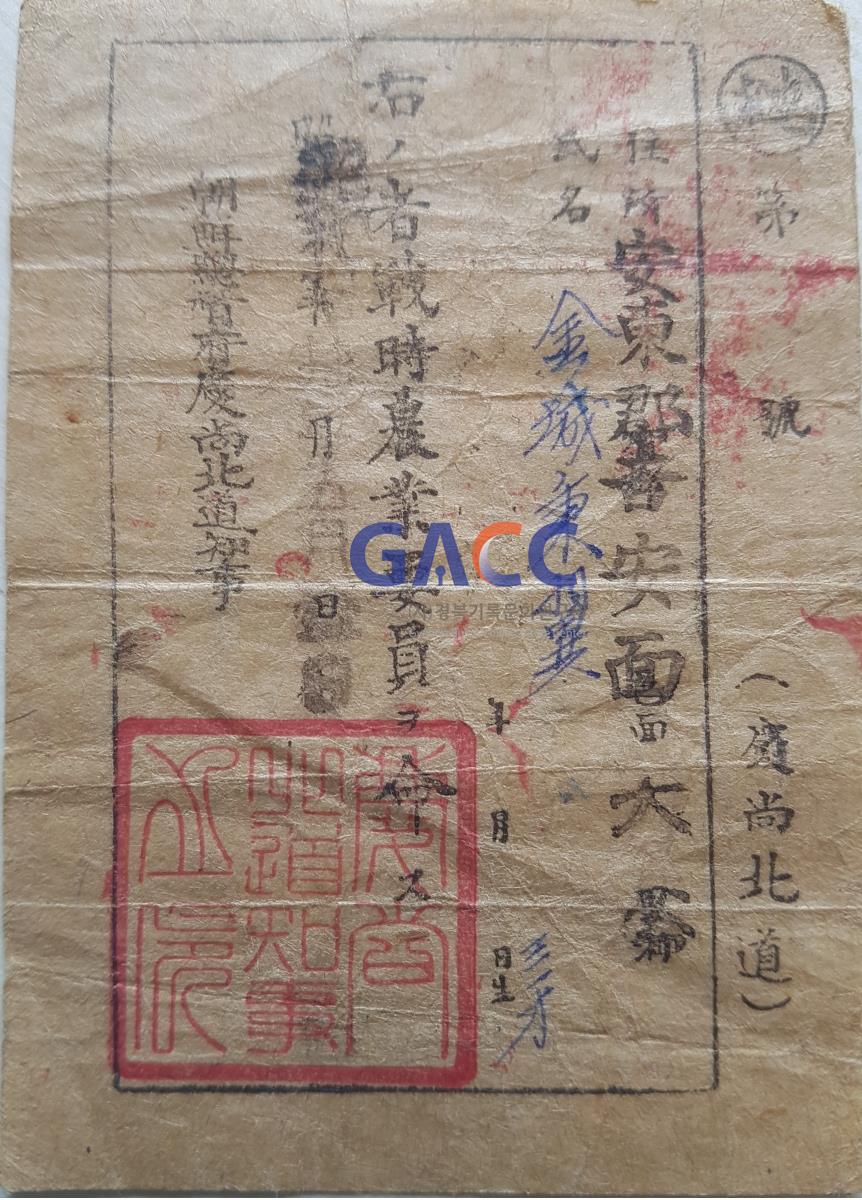 第 號 (慶尚北道)
住所 安東郡 面 大
氏名 金城秉翼
年 月 日生 三一才
右ノ者戰時農業要員ヲ命ス
年 月 日
朝鮮總督府慶尚北道知事
慶尚
北道知事
之印
GACC
경북기록문화